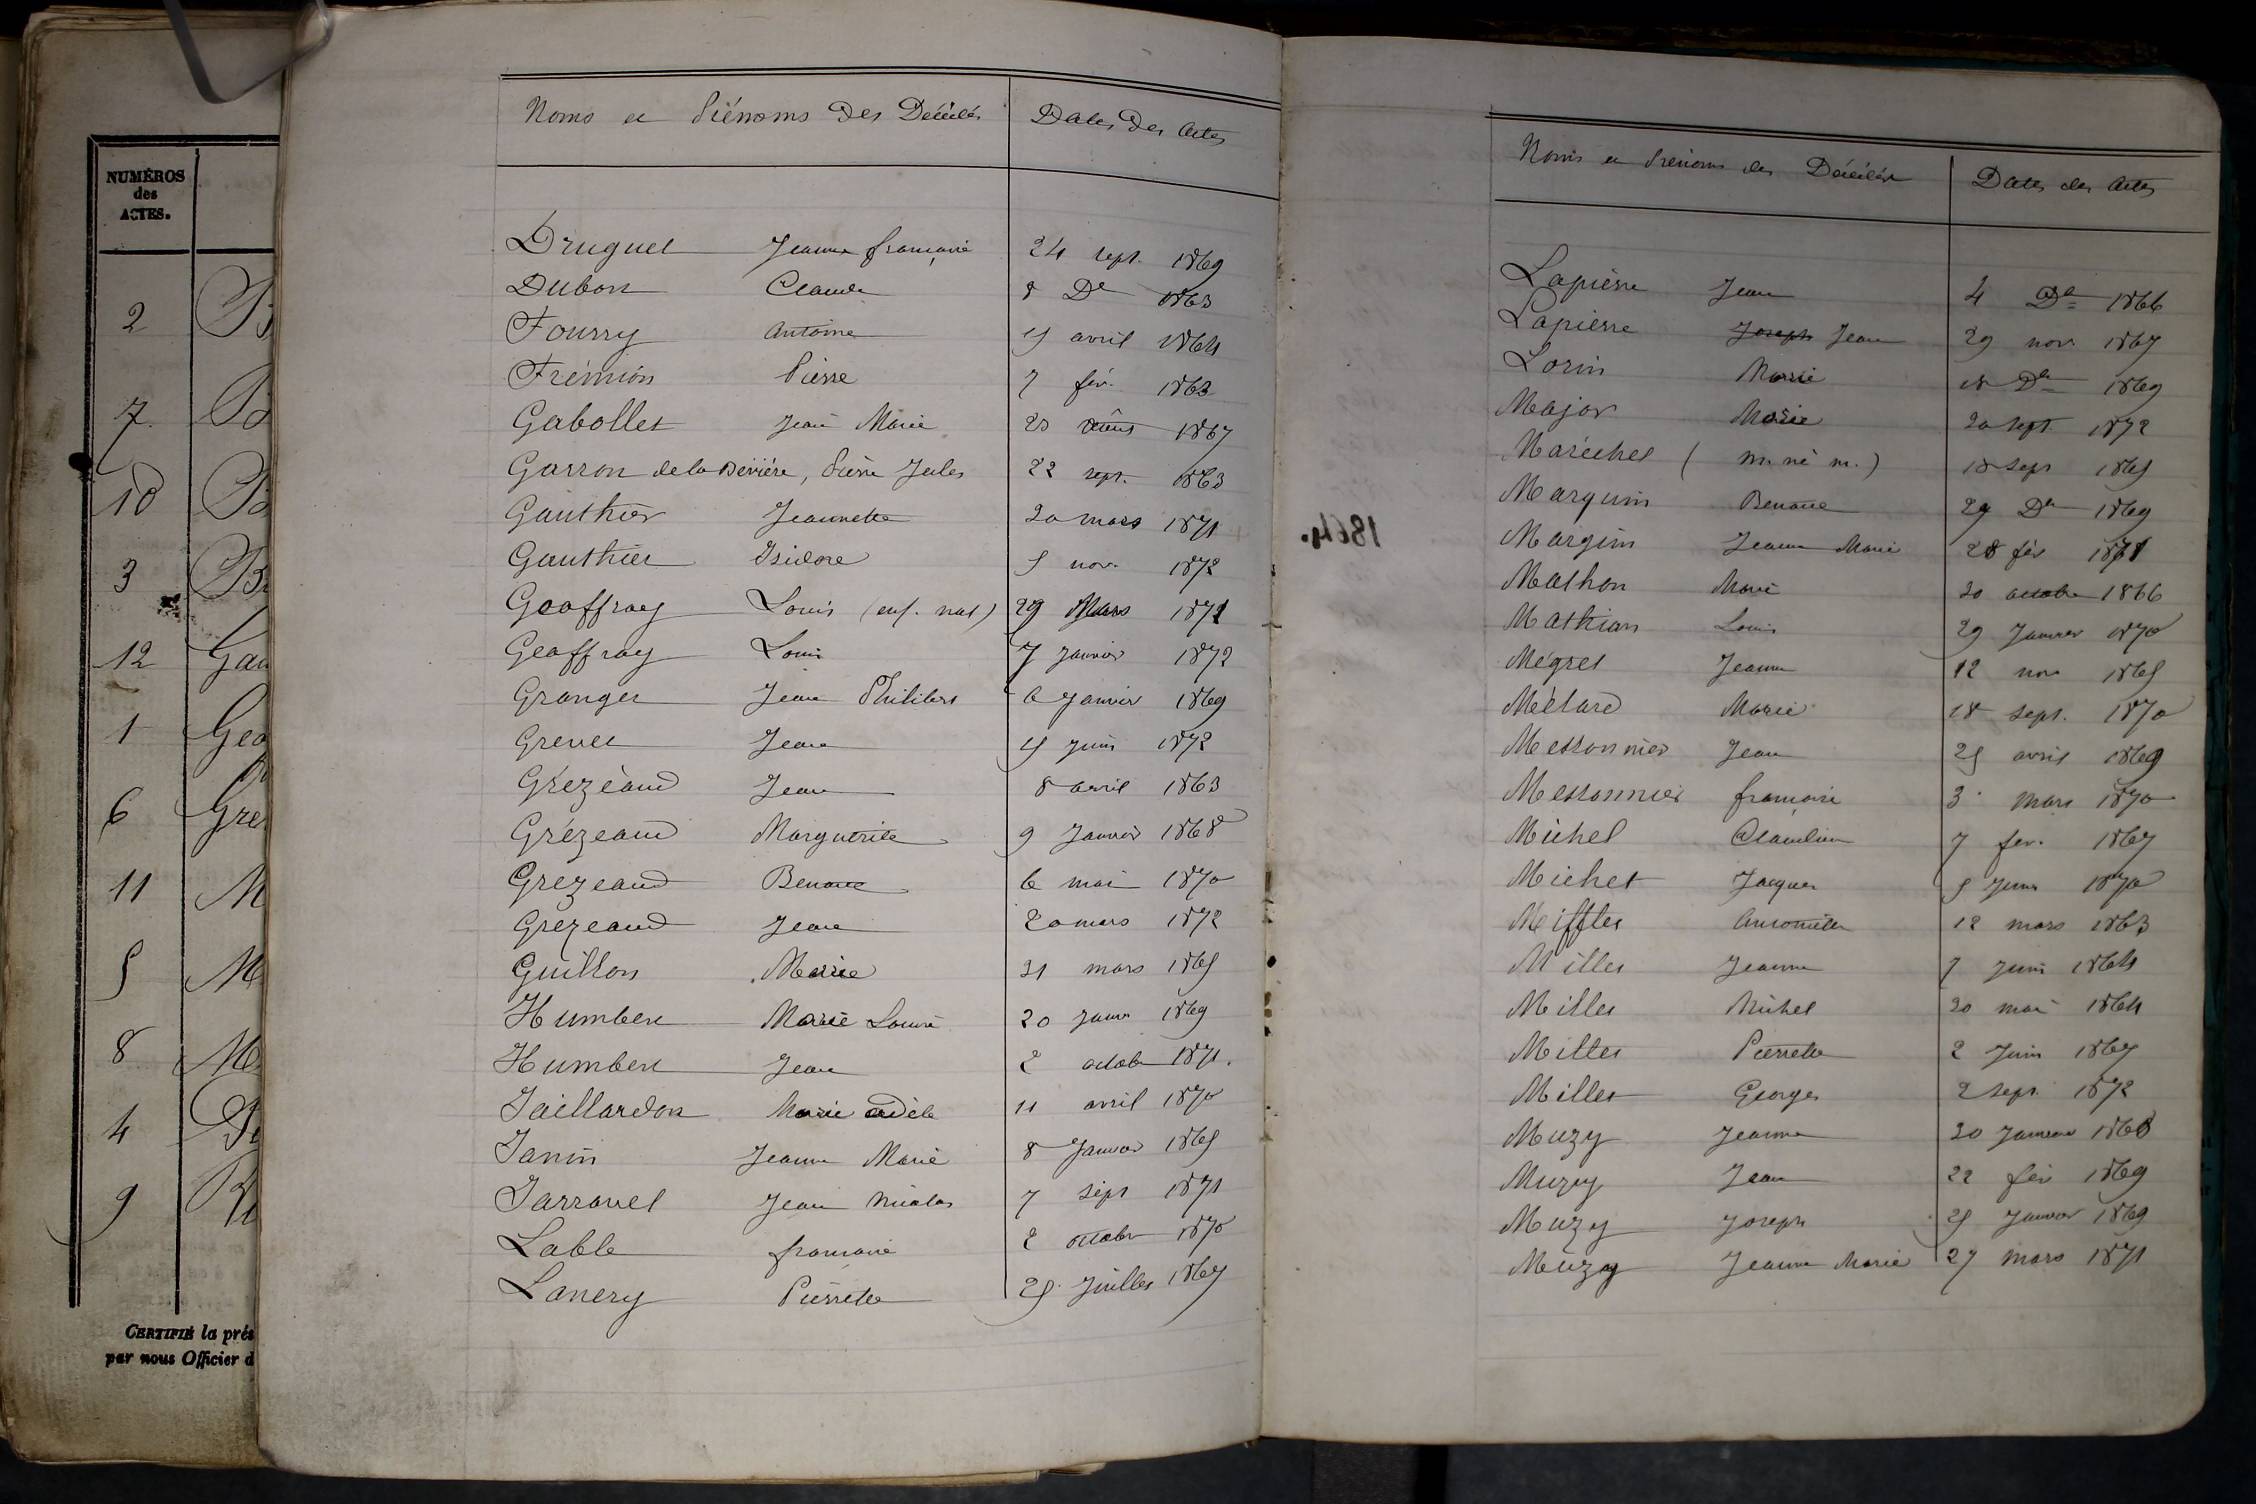 NUMÉROS
des
ACTES.
2 B
7. B
10 B
3 Br
12 Gau
1 Geo
6 Gre
11 M
5 M
8 M
4
9
CERTIFIÉ la prés
par nous Officier d
Noms et Prénoms des Décédés Dates des Actes
Druguet Jeanne françoise 24 sept. 1869
Dubost Claude 8 Dre 1863
Fourry Antoine 15 avril 1864
Frémion Pierre 7 fév. 1863
Gabollet Jean Marie 1867
Garron de la Bévière, Pierre Jules 22 sept. 1863
Gauthier Jeannette 20 mars 1871
Gauthier Isidore 5 nov. 1872
Geoffray Louis (enf. nat) 29 Mars 1871
Geoffray Louis 7 Janvier 1872
Granger Jean Philibert 6 Janvier 1869
Grenet Jean 15 juin 1872
Grézeaud Jean 8 avril 1863
Grézeaud Marguerite 9 Janvier 1868
Grezeaud Benoit 6 mai 1870
Grezeaud Jean 20 mars 1872
Guillon Marie 31 mars 1865
Humbert Marie Louise 20 Janv 1869
Humbert Jean 2 octobre 1871.
Jaillardon Marie adèle 11 avril 1870
Janin Jeanne Marie 8 Janvier 1865
Jarravel Jean Nicolas 7 sept 1871
Lable françoise 2 octobre 1870
Lanery Pierrette 25 Juillet 1867
1864.
Noms et Prénoms des Décédés Dates des Actes
Lapierre Jean 4 Dre 1866
Lapierre Joseph Jean 29 nov 1867
Lorin Marie 18 Dre 1869
Major Marie 20 sept 1872
Maréchel ( m. né m. ) 18 sept 1865
Marguin Benoite 29 Dre 1869
Marguin Jeanne Marie 28 fév 1871
Mathon Marie 20 octobre 1866
Mathian Louis 29 Janvier 1870
Mégret Jeanne 12 nov 1865
Métard Marie 18 sept. 1870
Messonnier Jean 25 avril 1869
Messonnier françoise 3 mars 1870
Michel Claudine 7 fev. 1867
Michel Jacques 5 Juin 1870
Mifflet Antoinette 12 mars 1863
Millet Jeanne 7 Juin 1864
Millet Michel 20 mai 1864
Millet Pierrette 2 Juin 1867
Millet Georges 2 sept. 1872
Muzy Jeanne 20 Janvier 1868
Muzy Jean 22 fév 1869
Muzy Joseph 25 Janvier 1869
Muzy Jeanne Marie 27 mars 1871